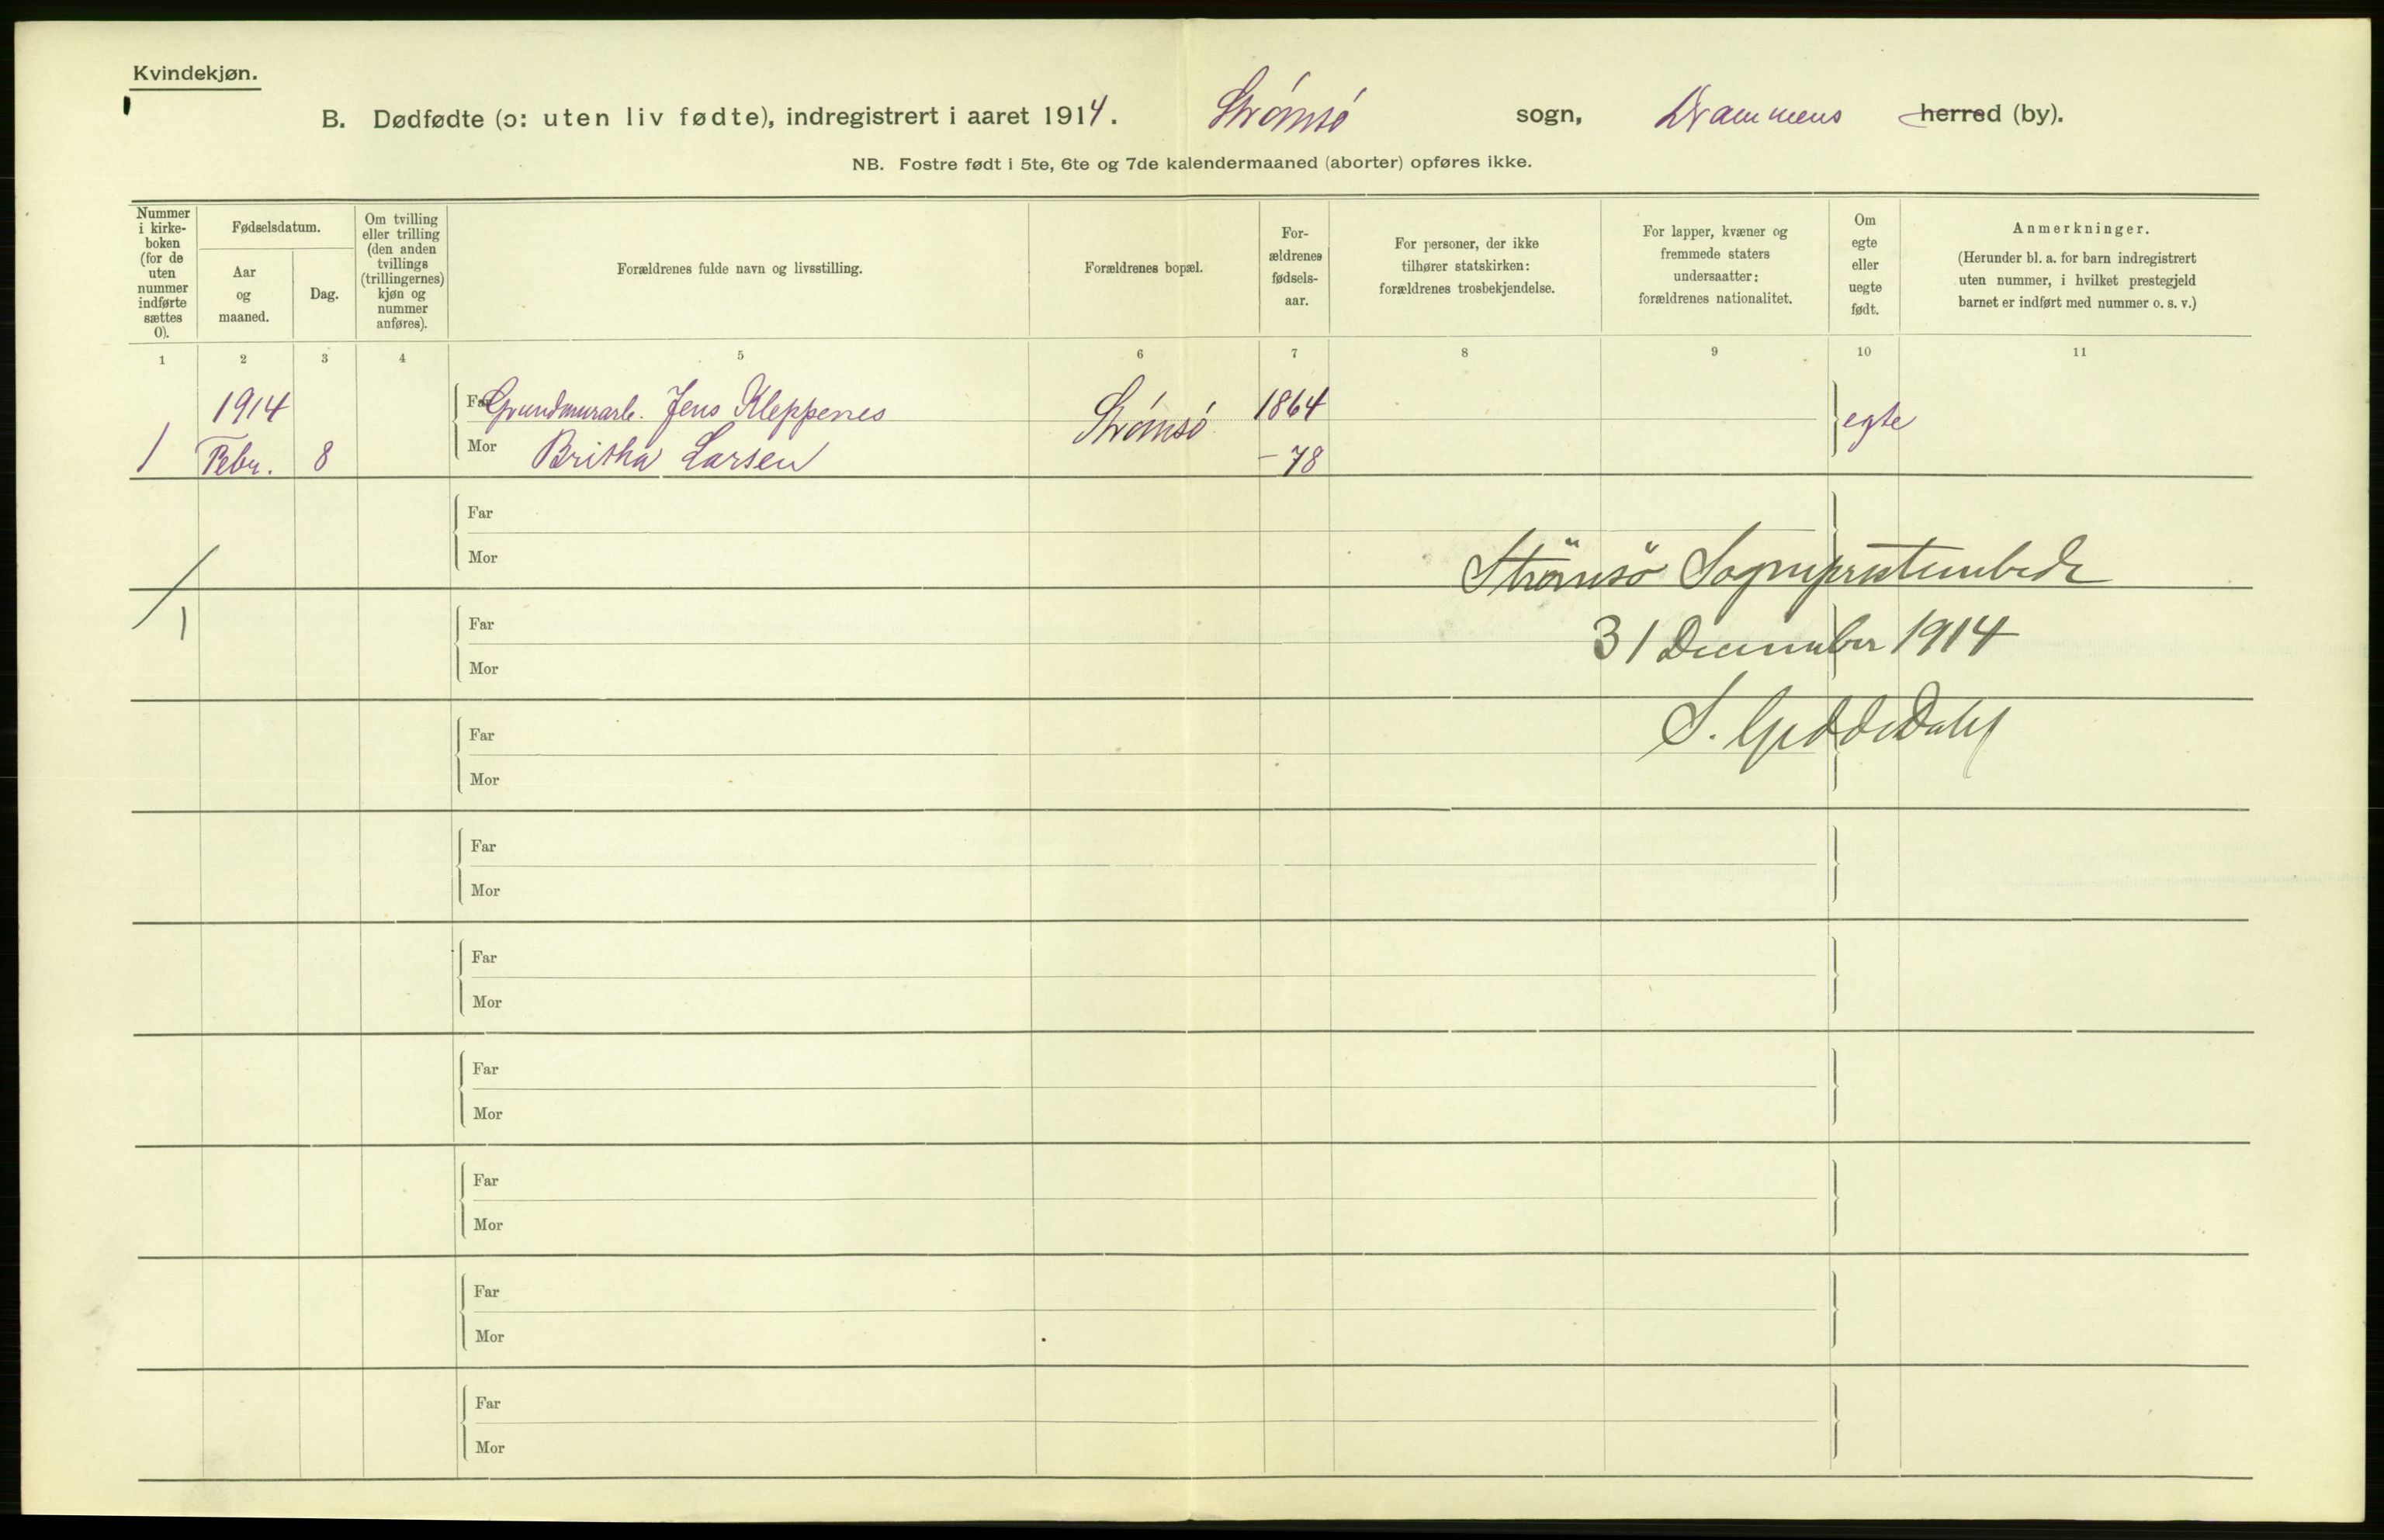 Kvindekjøn.
B. Dødfødte (ɔ: uten liv fødte), indregistrert i aaret 1914. Strømsø sogn, Drammens herred (by).
NB. Fostre født i 5te, 6te og 7de kalendermaaned (aborter) opføres ikke.
Nummer i kirke- boken (for de uten nummer indførte sættes 0).
Fødselsdatum.
Aar og maaned.
Dag.
Om tvilling eller trilling (den anden tvillings (trillingernes) kjøn og nummer anføres).
Forældrenes fulde navn og livsstilling.
Forældrenes bopæl.
For- ældrenes fødsels- aar.
For personer, der ikke tilhører statskirken: forældrenes trosbekjendelse.
For lapper, kvæner og fremmede staters undersaatter: forældrenes nationalitet.
Om egte eller uegte født.
Anmerkninger.
(Herunder bl. a. for barn indregistrert uten nummer, i hvilket prestegjeld barnet er indført med nummer o. s. v.)
1 2 3 4 5 6 7 8 9 10 11
1914 Far Grundmurarb. Jens Kleppenes Strømsø 1864 egte
1 Febr. 8 Mor Britha Larsen - 78
Far
Mor
Strömsö Sogneprestembede
1
Far
31 December 1914
Mor
Far
S. Gedde Dahl
Mor
Far
Mor
Far
Mor
Far
Mor
Far
Mor
Far
Mor
Far
Mor